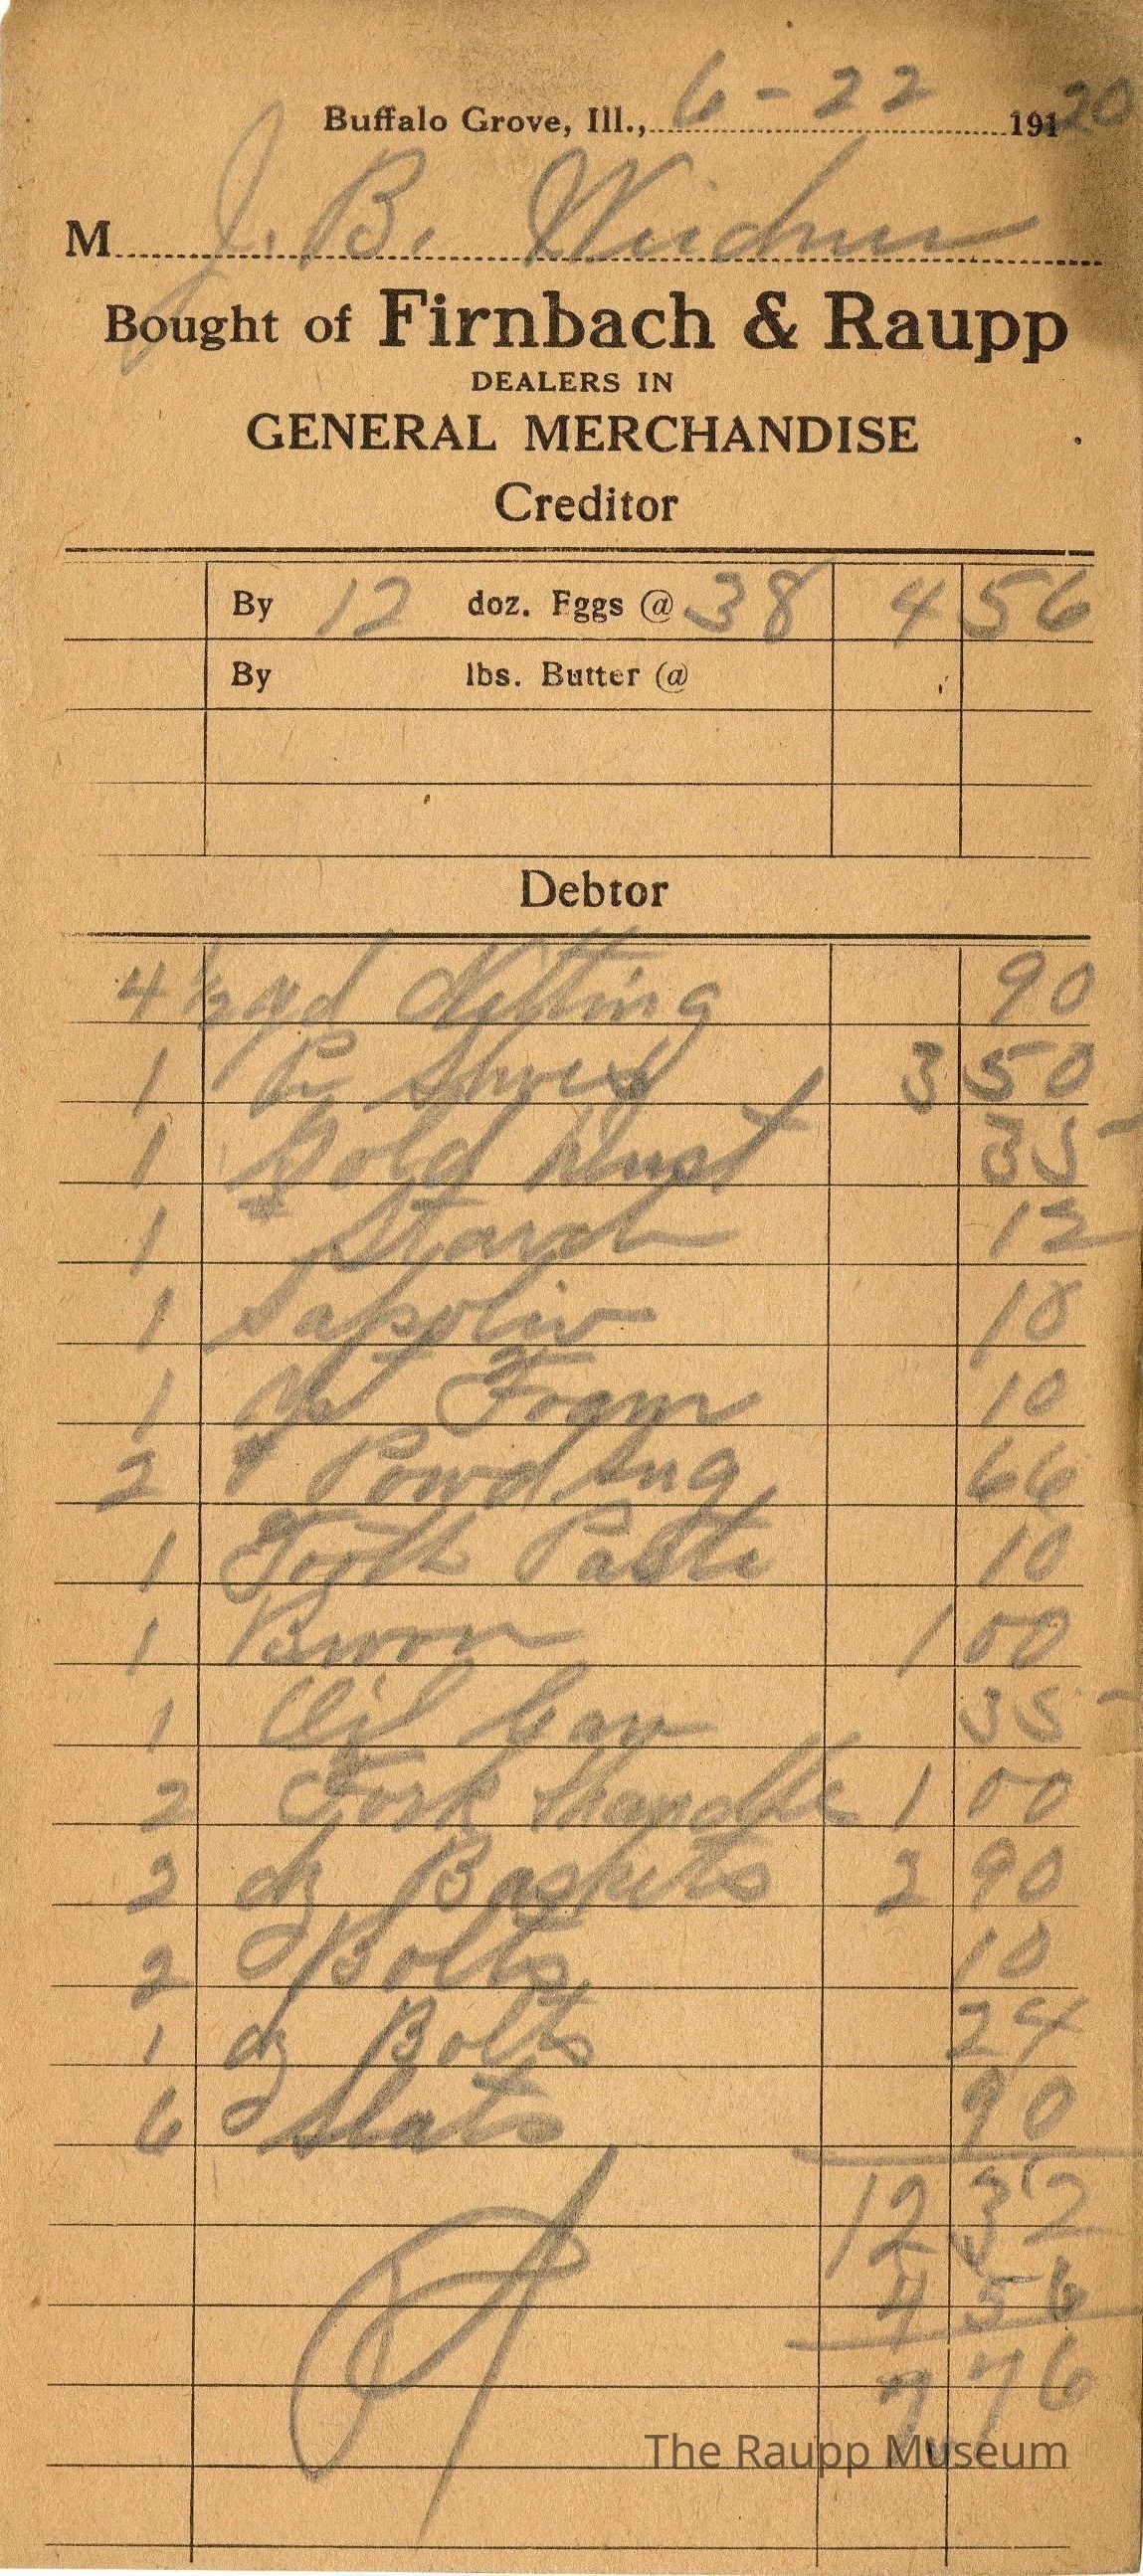 Buffalo Grove, Ill., 6-22 191 20
M J. B. Weidner
Bought of Firnbach & Raupp
DEALERS IN
GENERAL MERCHANDISE
Creditor
By 12 doz. Eggs @ 38 4 56
By lbs. Butter @
Debtor
4 1/2 yd Netting 90
1 Pr Shoes 3 50
1 Gold Dust 35
1 Starch 12
1 Sapolio 10
1 Foam 10
2 # Powd Sug 66
1 Tooth Paste 10
1 1 00
1 Oil Can 35
2 Fork Handle 1 00
2 dz Baskets 2 90
2 Bolts 10
1 dz Bolts 24
6 Slats 90
12 32
4 56
7 76
The Raupp Museum